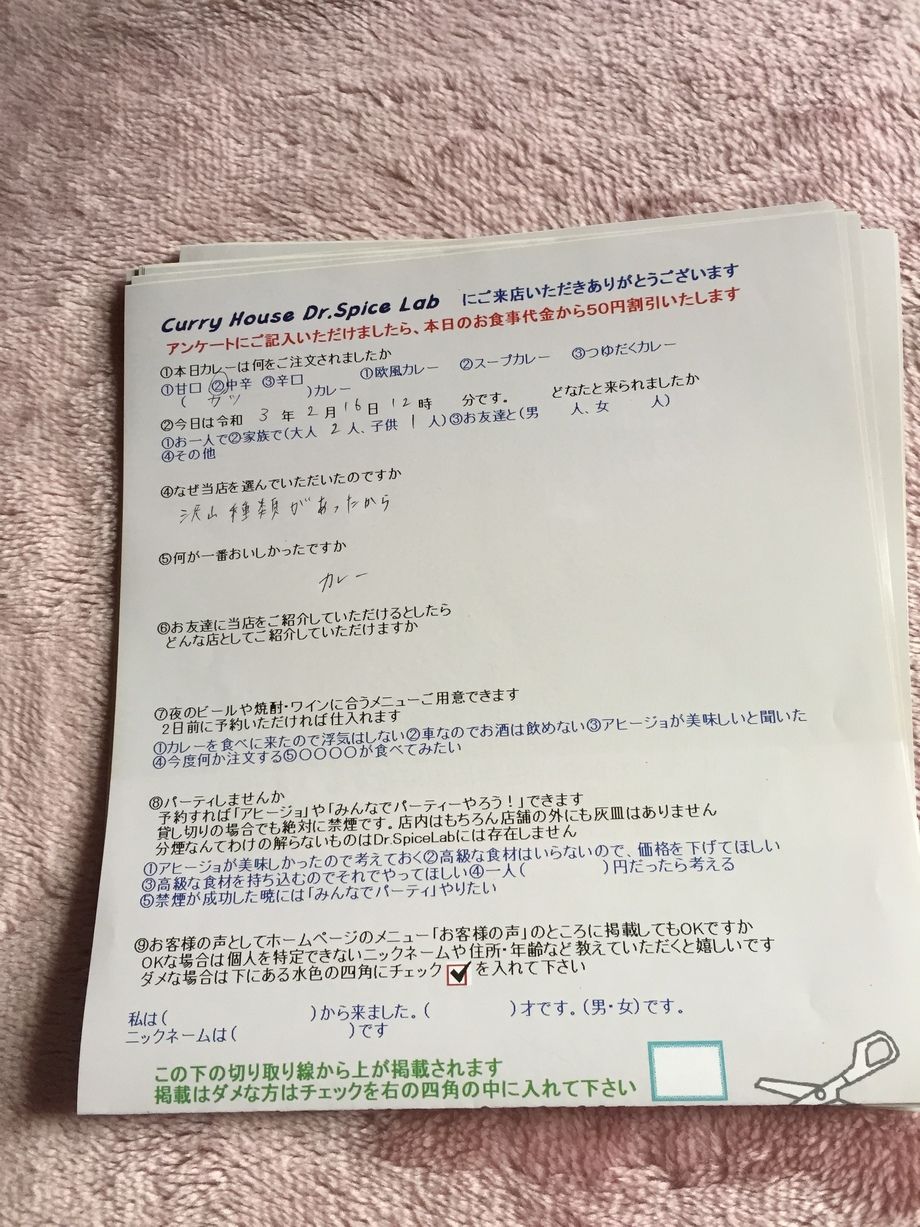 Curry House Dr.Spice Lab にご来店いただきありがとうございます
アンケートにご記入いただけましたら、本日のお食事代金から50円割引いたします
①本日カレーは何をご注文されましたか
①甘口 ②中辛 ③辛口 ①欧風カレー ②スープカレー ③つゆだくカレー
( カツ )カレー
②今日は令和 3 年 2 月 16 日 12 時 分です。 どなたと来られましたか
①お一人で②家族で(大人 2 人、子供 1 人)③お友達と(男 人、女 人)
④その他
④なぜ当店を選んでいただいたのですか
沢山種類があったから
⑤何が一番おいしかったですか
カレー
⑥お友達に当店をご紹介していただけるとしたら
どんな店としてご紹介していただけますか
⑦夜のビールや焼酎・ワインに合うメニューご用意できます
2日前に予約いただければ仕入れます
①カレーを食べに来たので浮気はしない②車なのでお酒は飲めない③アヒージョが美味しいと聞いた
④今度何か注文する⑤〇〇〇〇が食べてみたい
⑧パーティしませんか
予約すれば「アヒージョ」や「みんなでパーティーやろう!」できます
貸し切りの場合でも絶対に禁煙です。店内はもちろん店舗の外にも灰皿はありません
分煙なんてわけの解らないものはDr.SpiceLabには存在しません
①アヒージョが美味しかったので考えておく②高級な食材はいらないので、価格を下げてほしい
③高級な食材を持ち込むのでそれでやってほしい④一人( )円だったら考える
⑤禁煙が成功した暁には「みんなでパーティ」やりたい
⑨お客様の声としてホームページのメニュー「お客様の声」のところに掲載してもOKですか
OKな場合は個人を特定できないニックネームや住所・年齢など教えていただくと嬉しいです
ダメな場合は下にある水色の四角にチェック を入れて下さい
私は( )から来ました。( )才です。(男・女)です。
ニックネームは( )です
この下の切り取り線から上が掲載されます
掲載はダメな方はチェックを右の四角の中に入れて下さい